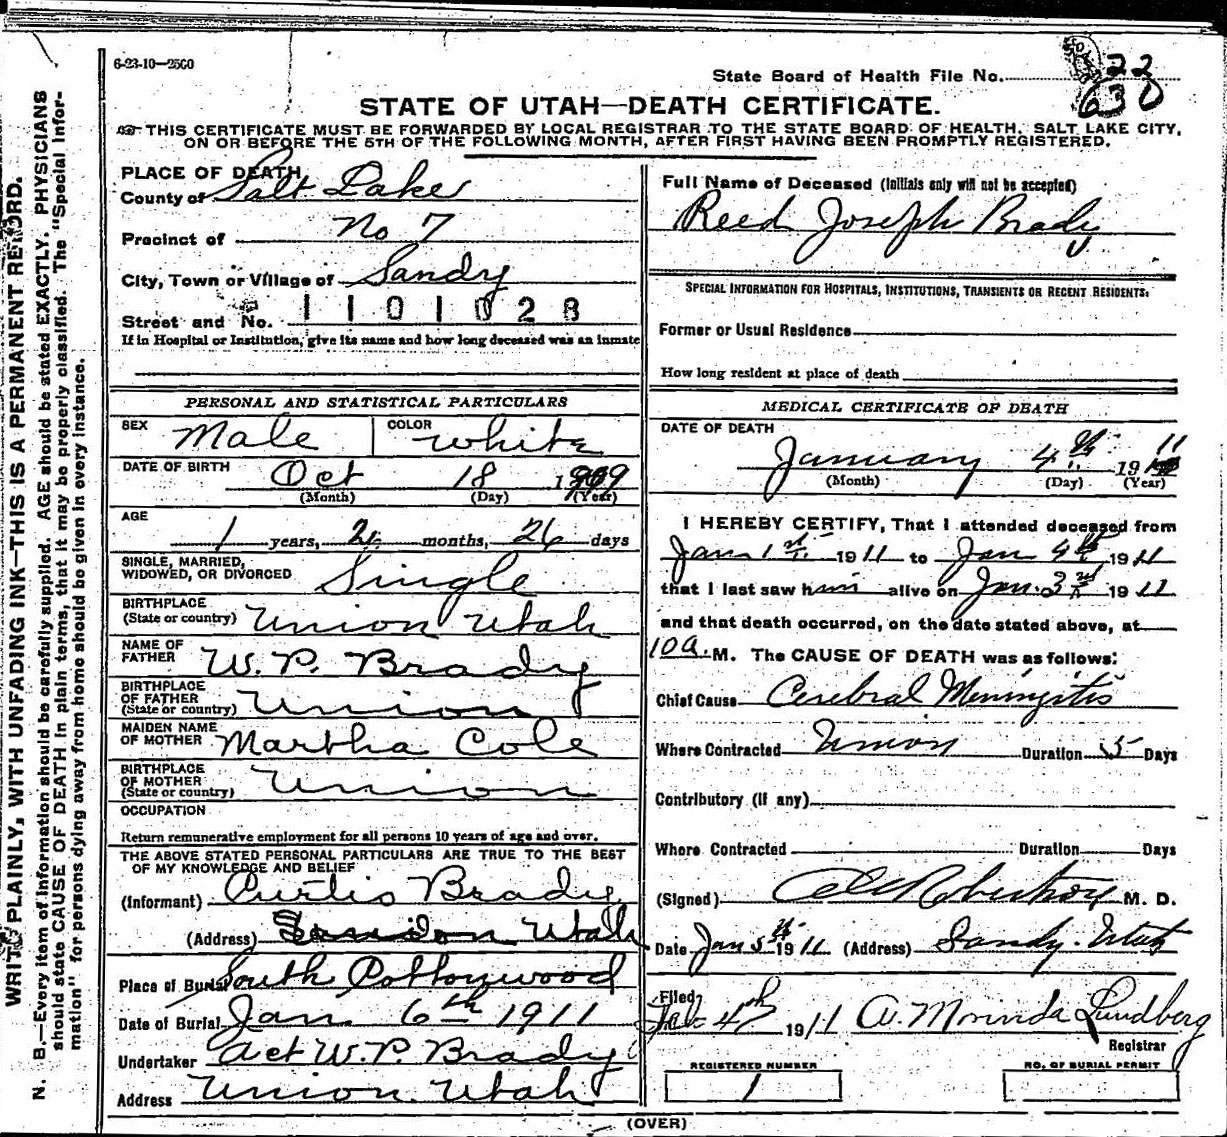 6-23-10—2500
State Board of Health File No. 22
630
STATE OF UTAH—DEATH CERTIFICATE.
THIS CERTIFICATE MUST BE FORWARDED BY LOCAL REGISTRAR TO THE STATE BOARD OF HEALTH, SALT LAKE CITY,
ON OR BEFORE THE 5TH OF THE FOLLOWING MONTH, AFTER FIRST HAVING BEEN PROMPTLY REGISTERED.
WRITE PLAINLY, WITH UNFADING INK—THIS IS A PERMANENT RECORD.
N. B.—Every item of information should be carefully supplied. AGE should be stated EXACTLY. PHYSICIANS
should state CAUSE OF DEATH in plain terms, that it may be properly classified. The "Special Infor-
mation" for persons dying away from home should be given in every instance.
PLACE OF DEATH
County of Salt Lake
Precinct of No 7
City, Town or Village of Sandy
1101028
Street and No.
If in Hospital or Institution, give its name and how long deceased was an inmate
PERSONAL AND STATISTICAL PARTICULARS
SEX Male COLOR White
DATE OF BIRTH Oct 18 1909
(Month) (Day) (Year)
AGE
1 years, 2 months, 26 days
SINGLE, MARRIED,
WIDOWED, OR DIVORCED Single
BIRTHPLACE
(State or country) Union Utah
NAME OF
FATHER W. P. Brady
BIRTHPLACE
OF FATHER
(State or country) Union
MAIDEN NAME
OF MOTHER Martha Cole
BIRTHPLACE
OF MOTHER
(State or country) Union
OCCUPATION
Return remunerative employment for all persons 10 years of age and over.
THE ABOVE STATED PERSONAL PARTICULARS ARE TRUE TO THE BEST
OF MY KNOWLEDGE AND BELIEF
(Informant) Curtis Brady
(Address) Utah
Place of Burial South Cottonwood
Date of Burial Jan 6th 1911
Undertaker Act W. P. Brady
Address Union Utah
Full Name of Deceased (Initials only will not be accepted)
Reed Joseph Brady
SPECIAL INFORMATION FOR HOSPITALS, INSTITUTIONS, TRANSIENTS OR RECENT RESIDENTS:
Former or Usual Residence
How long resident at place of death
MEDICAL CERTIFICATE OF DEATH
DATE OF DEATH
January 4th 1911
(Month) (Day) (Year)
I HEREBY CERTIFY, That I attended deceased from
Jan 1st 1911 to Jan 4th 1911
that I last saw him alive on Jan. 3rd 1911
and that death occurred, on the date stated above, at
10 a. M. The CAUSE OF DEATH was as follows:
Chief Cause Cerebral Meningitis
Where Contracted Union Duration 5 Days
Contributory (if any)
Where Contracted Duration Days
(Signed) Robertson M. D.
Date Jan 5th 1911 (Address) Sandy. Utah
Filed
Feb 4th 1911 A. Morinda Lundberg
Registrar
REGISTERED NUMBER
1
NO. OF BURIAL PERMIT
(OVER)